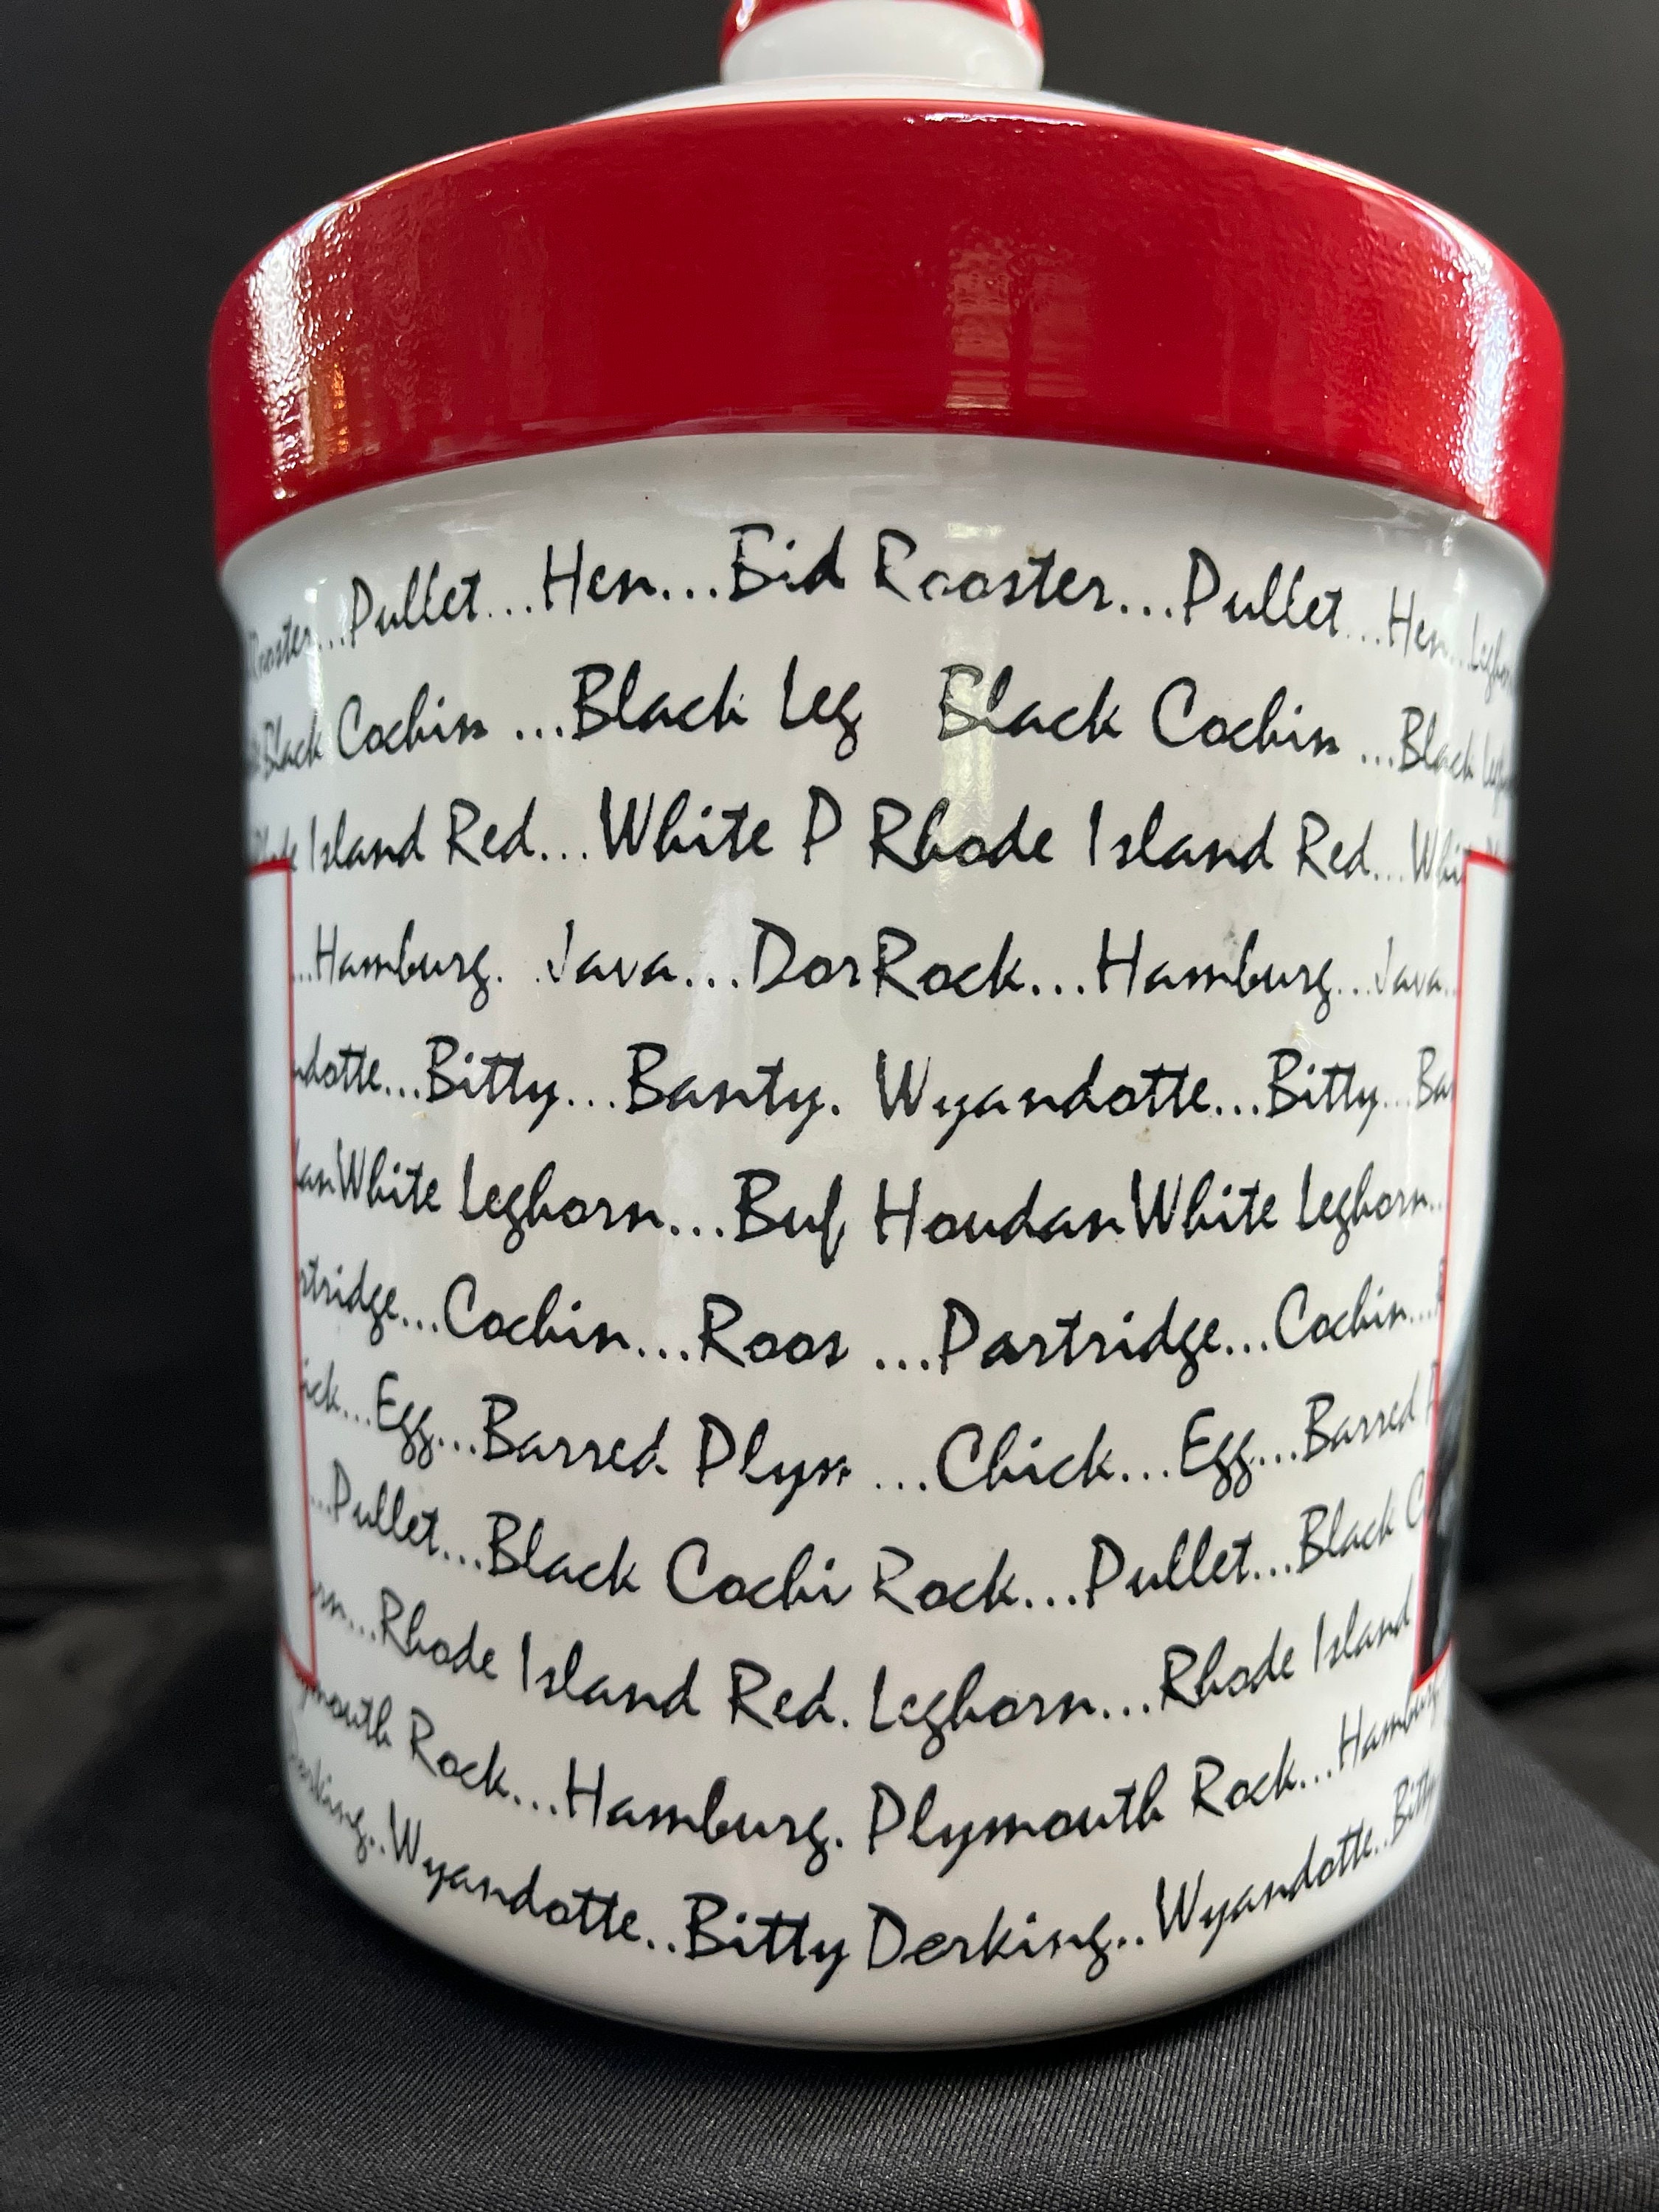 Rooster...Pullet...Hen...Bid Rooster...Pullet...Hen...Legho
Black Cochin ...Black Leg Black Cochin ...Black Legh
Island Red...White P Rhode Island Red...Whi
...Hamburg. Java...DorRock...Hamburg...Java...
ndotte...Bitty...Banty. Wyandotte...Bitty...Ba
anWhite Leghorn...Buf HoudanWhite Leghorn...
rtridge...Cochin...Roos ...Partridge...Cochin...
ick...Egg...Barred Plym ...Chick...Egg...Barred
...Pullet...Black Cochi Rock...Pullet...Black C
rn...Rhode Island Red. Leghorn...Rhode Island
ymouth Rock...Hamburg. Plymouth Rock...Hamburg
Derking..Wyandotte..Bitty Derking..Wyandotte..Bitty